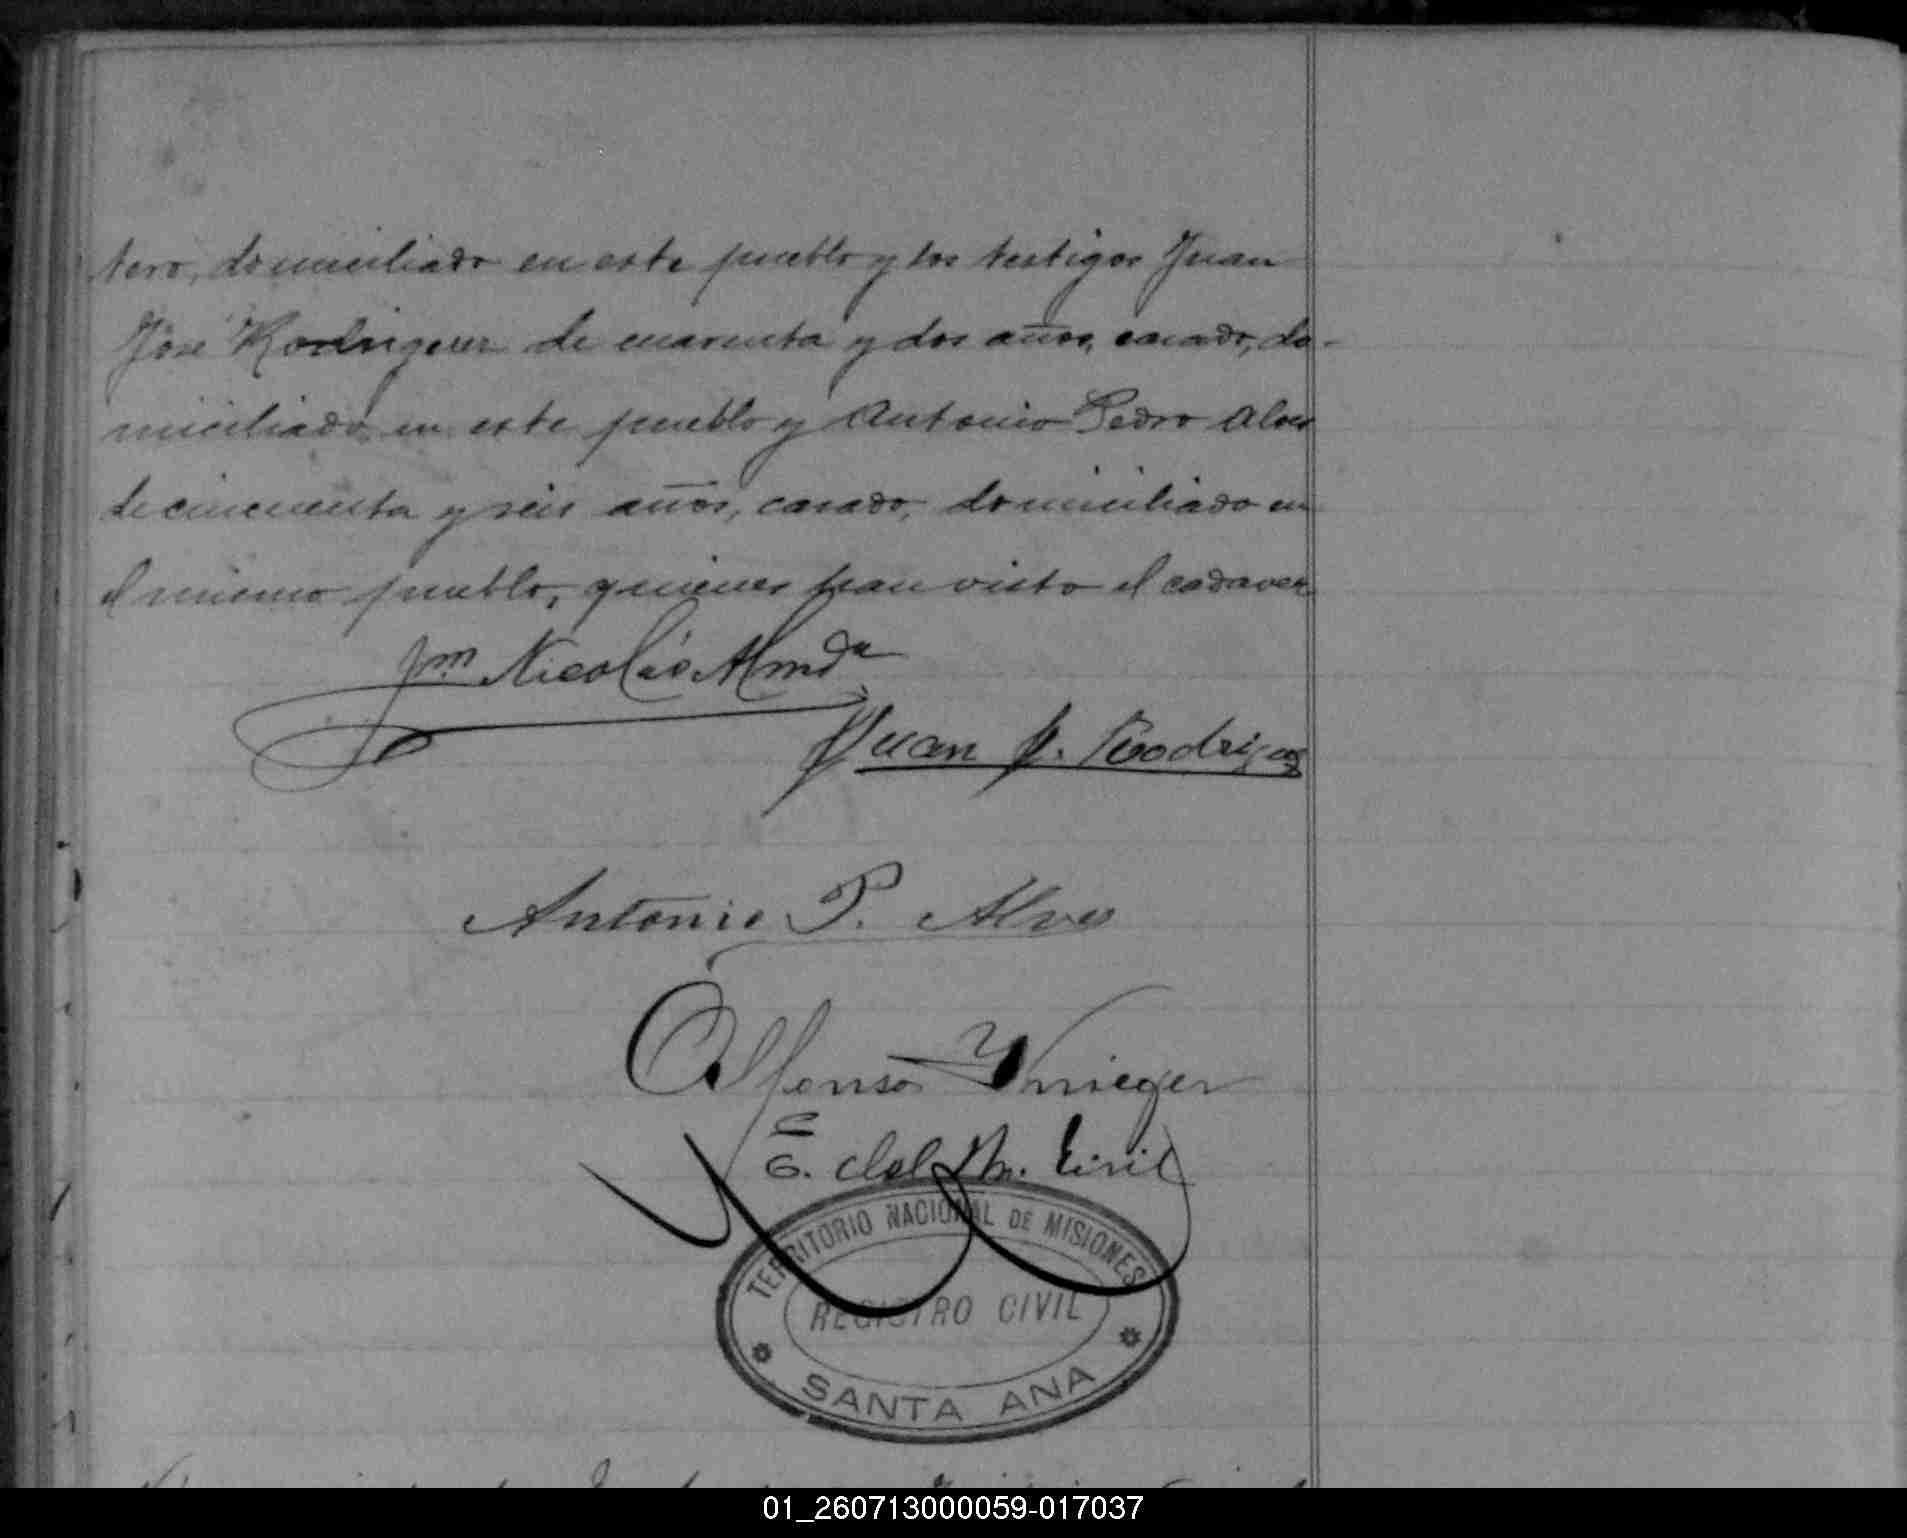 tero, domiciliado en este pueblo y los testigos Juan
José Rodriguez de cuarenta y dos años, casado, do-
miciliado en este pueblo y Antonio Pedro Alves
de cincuenta y seis años, casado, domiciliado en
el mismo pueblo, quienes han visto el cadaver
Nicolás Almda
Juan J. Rodriguez
Antonio P. Alves
Alfonso
E. del R. Civil
TERRITORIO NACIONAL DE MISIONES
REGISTRO CIVIL
SANTA ANA
01_260713000059-017037